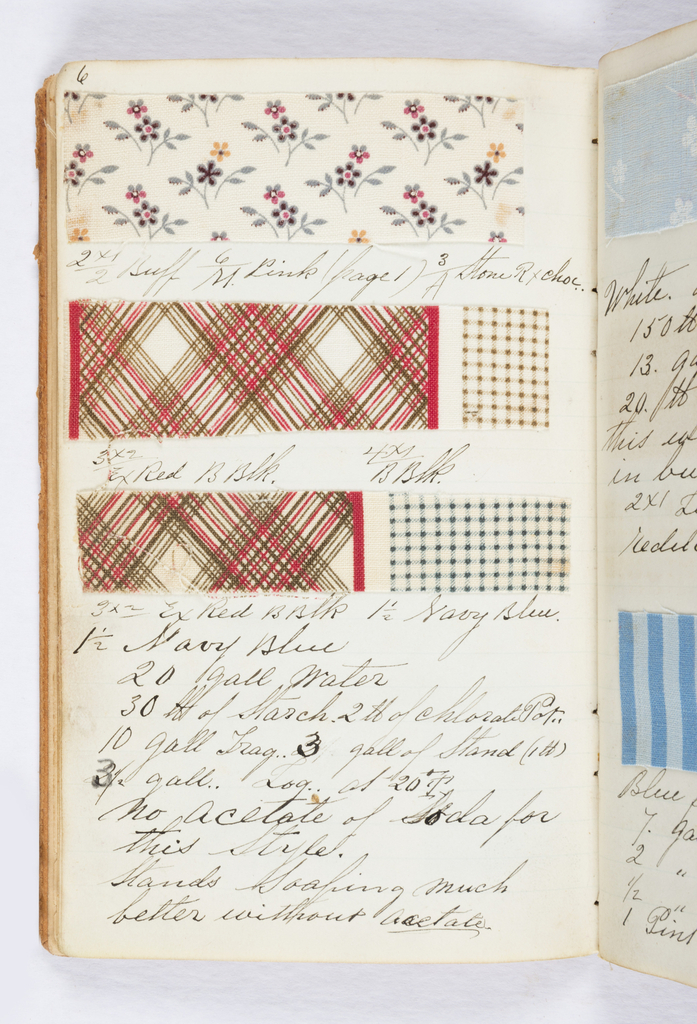 6
2x1/2 Buff 6/A. Pink (page 1) 3/A Stone R x choc.
3x2 Ex Red B Blk. 4x1 B Blk.
3x2 Ex Red B Blk 1½ Navy Blue.
1½ Navy Blue
20 gall Water
30 lb of Starch. 2 lb of chlorate Pot..
10 gall Trag.. 3 gall of Stand (1lb)
3½ gall.. Log.. at 20°
no acetate of Soda for
this Style.
Stands Soaping much
better without acetate.
White.
150 lb
13. ga
20. lb
this
in bu
2x1
Blue
7. ga
2 "
½ "
1 Pint